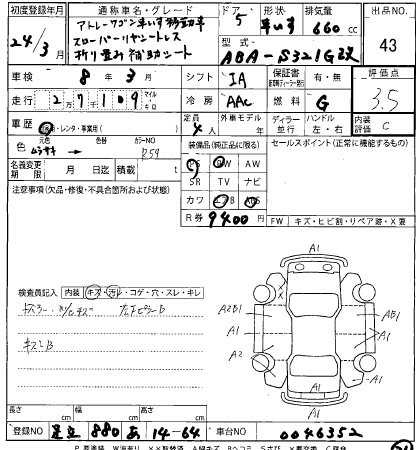 初度登録年月 通称車名・グレード ドア 形状 排気量 出品NO.
24/3月 アトレーワゴン 車いす移動車 5 車いす 660cc 43
スローパー リヤシートレス 型式
折り畳み補助シート ABA-S321G改
車検 8年 3月 シフト IA 保証書 有・無 評価点
走行 27109 マイル キロ 冷房 AAC 燃料 G 3.5
車歴 自家・レンタ・事業用( ) 定員 4人 外車モデル ディーラー 並行 ハンドル 左・右 内装 C
色 元色 ムラサキ 色替 カラーNO R59 装備品(純正品に限る) セールスポイント(正常に機能するもの)
名義変更期限 月 日迄 積載 t PS PW AW
注意事項(欠品・修復・不具合箇所および状態) SR TV ナビ
カワ エアB ABS
R券 9400円 FW キズ・ヒビ割・リペア跡・X要
A1
検査員記入 内装 キズ・汚レ・コゲ・穴・スレ・キレ
A2B1 A1 AB1
A1 A1
キズミB A2
A1
A1
長さ cm 幅 cm 高さ cm
登録NO 足立 880 あ 14-64 車台NO 0046352